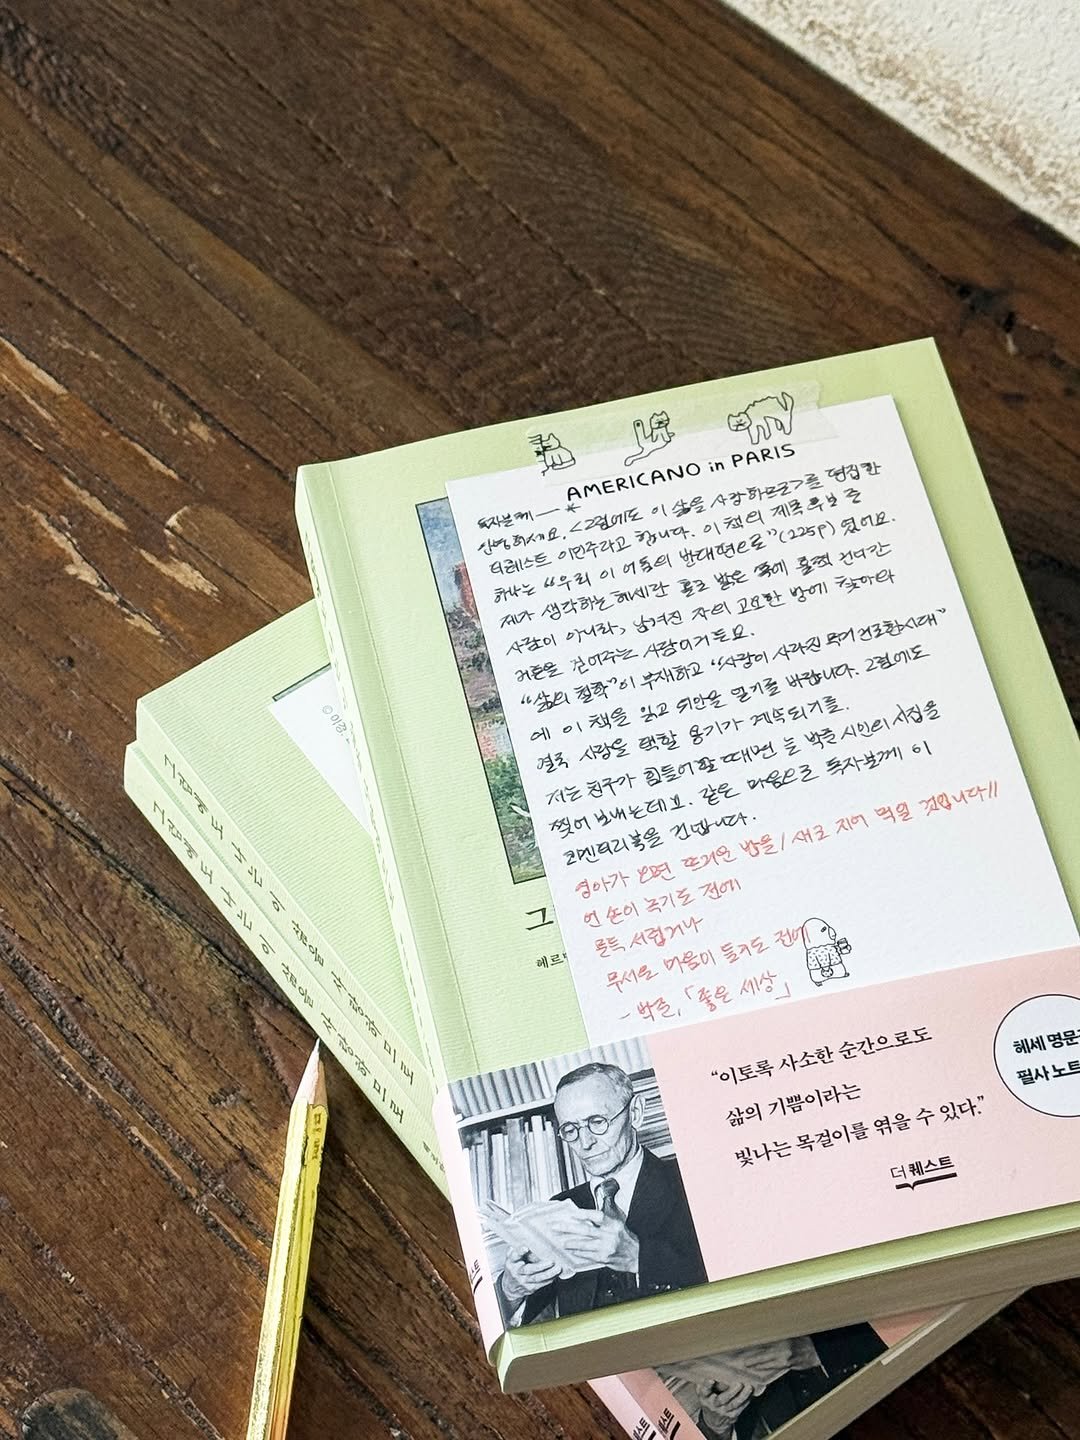 AMERICANO in PARIS
독자분께
안녕하세요. <그럼에도 이 삶을 사랑하므로>를 편집한
더퀘스트 이민주라고 합니다. 이 책의 제목 후보 중
하나는 “우리 이 어둠의 반대편으로”(225p) 였어요.
제가 생각하는 헤세란 홀로 밝은 쪽에 훌쩍 건너간
사람이 아니라, 남겨진 자의 고요한 방에 찾아와
커튼을 걷어주는 사람이거든요.
“삶의 철학”이 부재하고 “사람이 사라진 시대”
에 이 책을 읽고 위안을 얻기를 바랍니다. 그럼에도
결국 사랑을 택할 용기가 계속되기를.
저는 친구가 힘들어할 때면 늘 박준 시인의 시집을
찢어 보내는데요. 같은 마음으로 독자분께 이
코멘터리북을 건넵니다.
영아가 오면 뜨거운 밥을 / 새로 지어 먹일 것입니다 //
언 손이 녹기도 전에
문득 서럽거나
무서운 마음이 들기도 전에
- 박준, 「좋은 세상」
그
헤르
“이토록 사소한 순간으로도
삶의 기쁨이라는
빛나는 목걸이를 엮을 수 있다.”
더퀘스트
헤세 명문
필사 노트
그럼에도 나는 이 삶을 사랑하므로
그럼에도 나는 이 삶을 사랑하므로
퀘스트
퀘스트
퀘스트